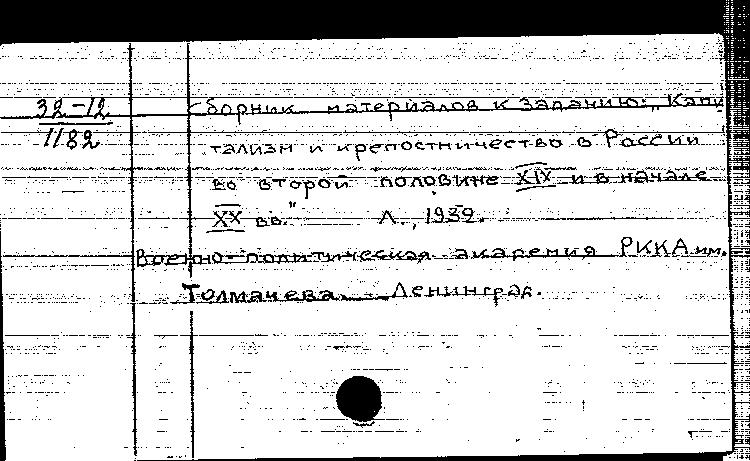 32-12
1182
Сборник материалов к заданию: „Капи
тализм и крепостничество в России
во второй половине XIX и в начале
XX вв." Л., 1932.
Военно-политическая академия РККА им.
Толмачева. Ленинград.